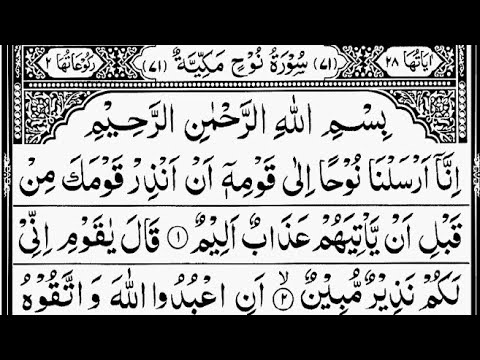 اٰيَاتُهَا ٢٨ (٧١) سُوْرَةُ نُوْحٍ مَكِّيَّةٌ (٧١) رُكُوْعَاتُهَا ٢
بِسْمِ اللّٰهِ الرَّحْمٰنِ الرَّحِيْمِ
اِنَّاۤ اَرْسَلْنَا نُوْحًا اِلٰى قَوْمِهٖۤ اَنْ اَنْذِرْ قَوْمَكَ مِنْ
قَبْلِ اَنْ يَّاْتِيَهُمْ عَذَابٌ اَلِيْمٌ ۝١ قَالَ يٰقَوْمِ اِنِّيْ
لَكُمْ نَذِيْرٌ مُّبِيْنٌ ۝٢ۙ اَنِ اعْبُدُوا اللّٰهَ وَ اتَّقُوْهُ